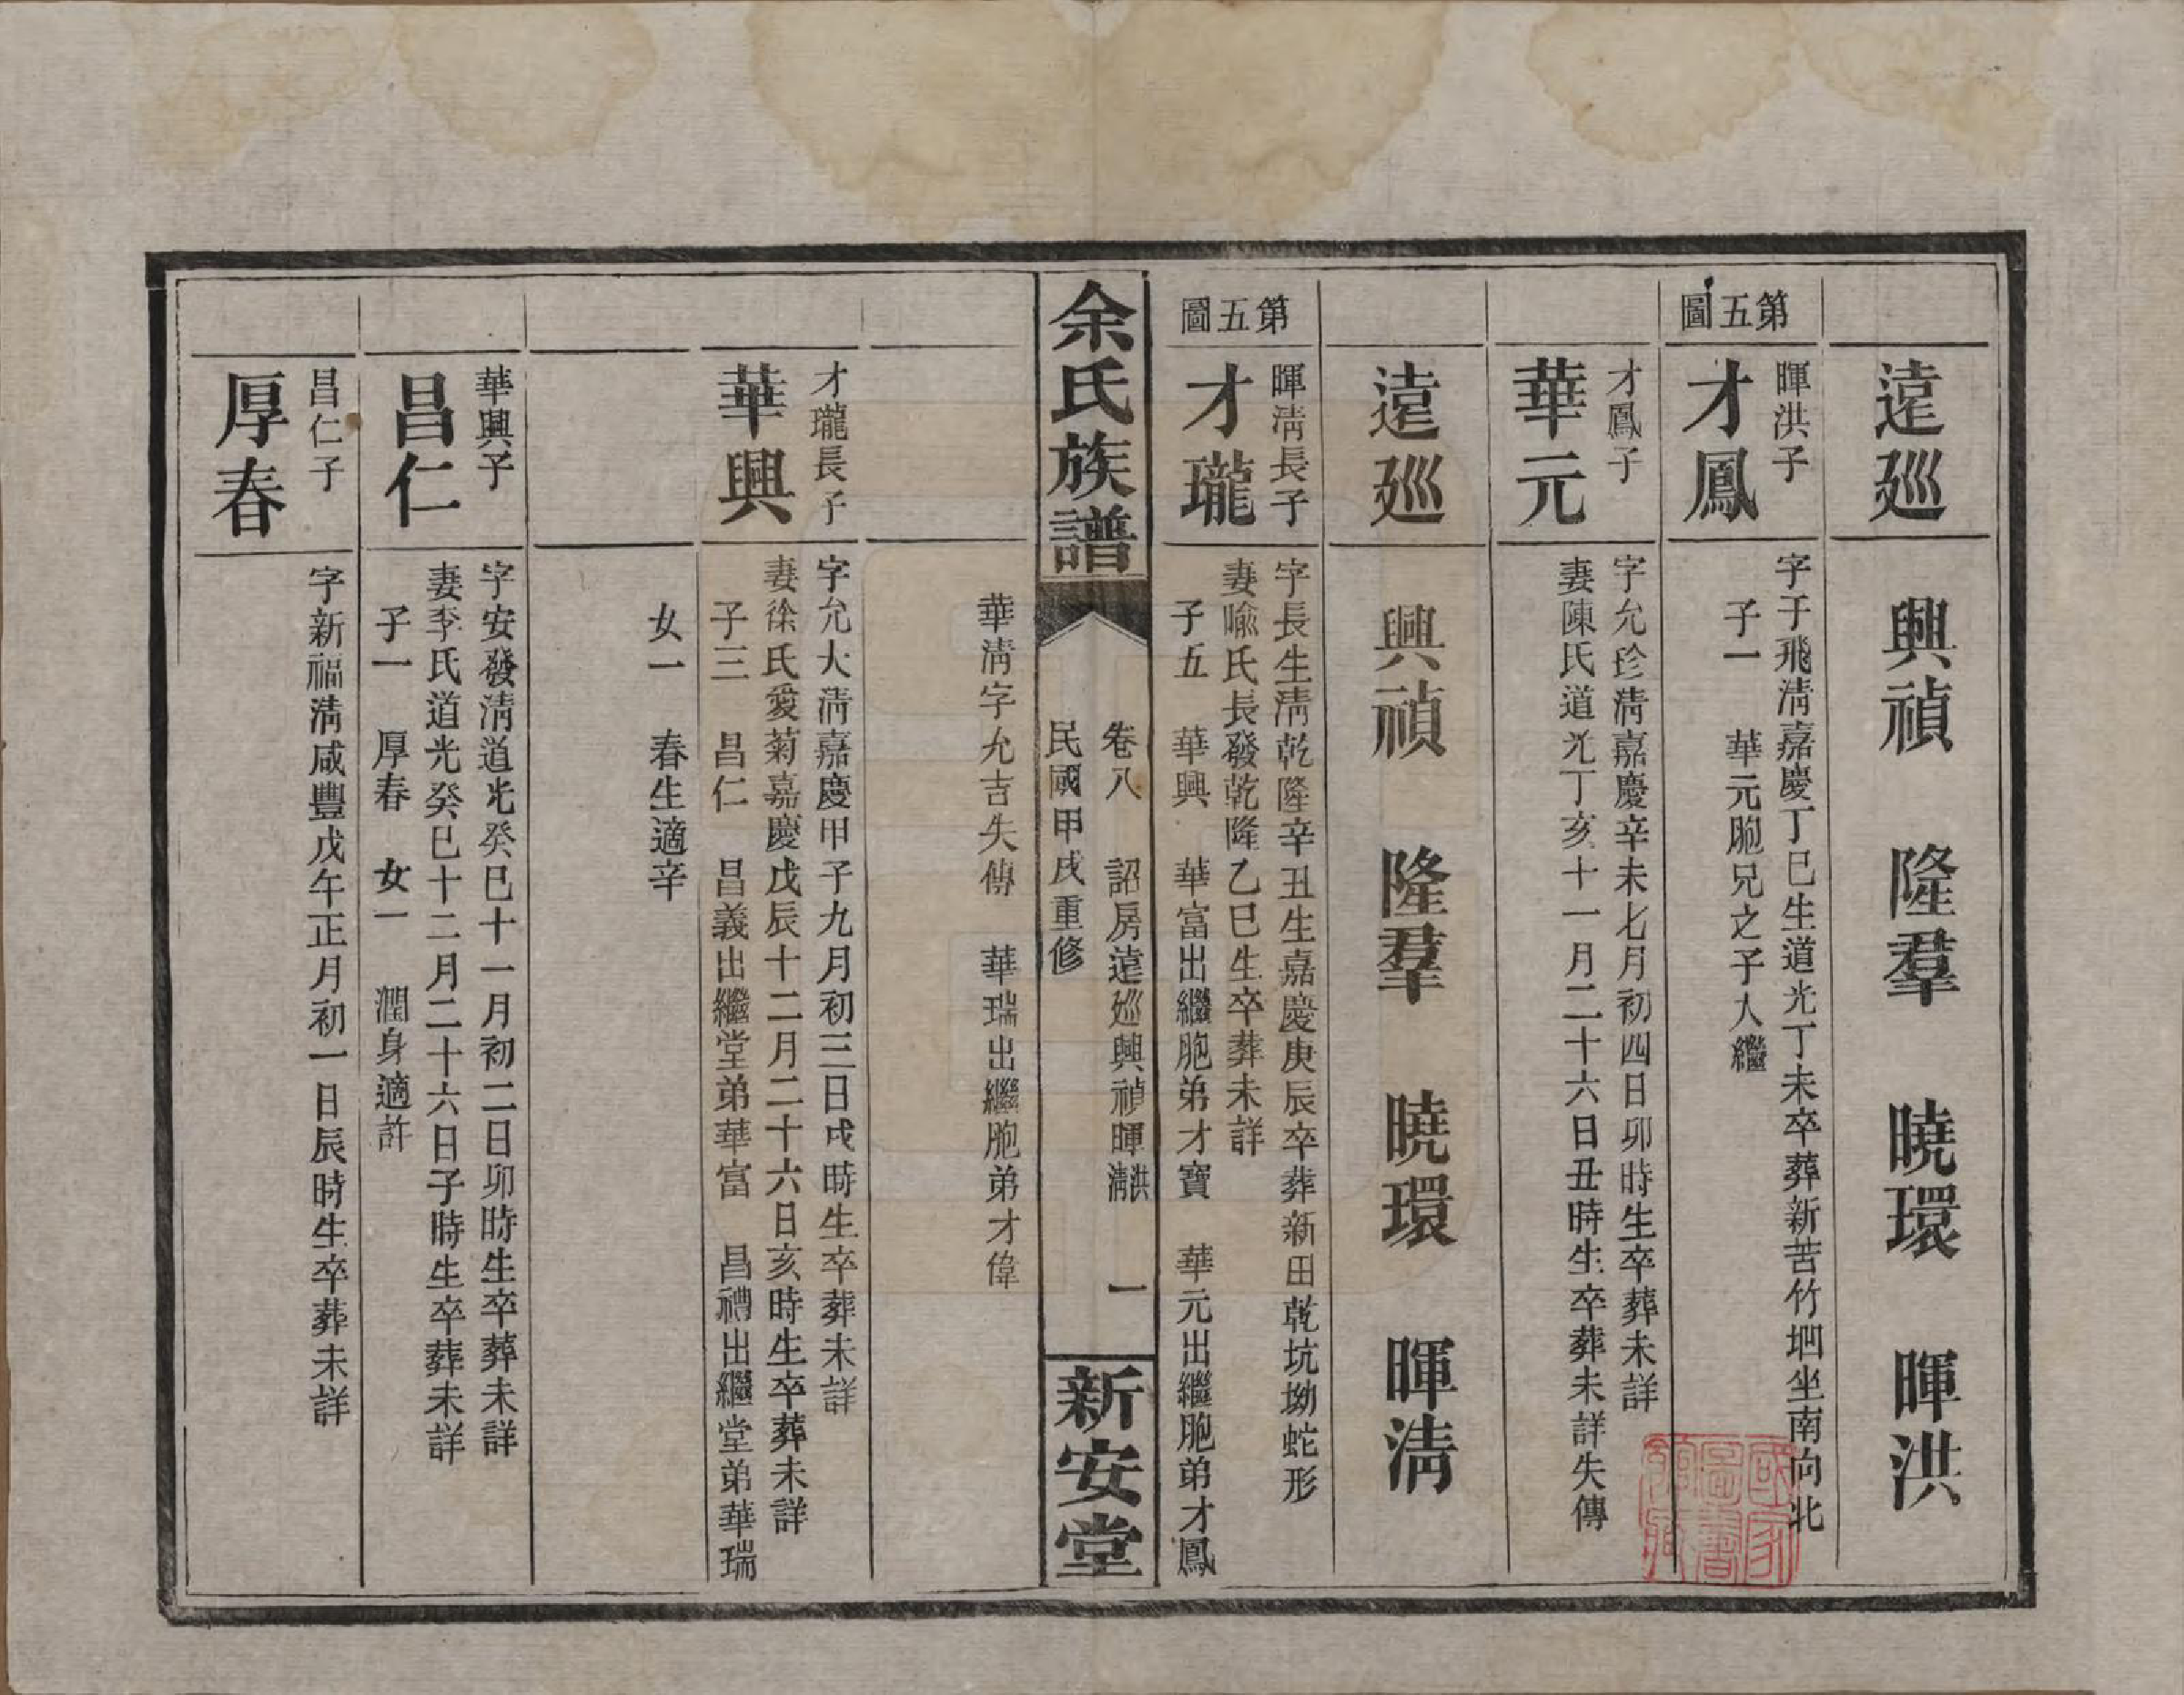 遠巡 興禎 隆羣 曉環 暉洪
第五圖
暉洪子
才鳳
字于飛淸嘉慶丁巳生道光丁未卒葬新苦竹坵坐南向北
子一 華元胞兄之子入繼
才鳳子
華元
字允珍淸嘉慶辛未七月初四日卯時生卒葬未詳
妻陳氏道光丁亥十一月二十六日丑時生卒葬未詳失傳
遠巡 興禎 隆羣 曉環 暉淸
第五圖
暉淸長子
才瓏
字長生淸乾隆辛丑生嘉慶庚辰卒葬新田乾坑坳蛇形
妻喩氏長發乾隆乙巳生卒葬未詳
子五 華興 華富出繼胞弟才寶 華元出繼胞弟才鳳
余氏族譜
卷八 詔房遠巡興禎暉洪淸 一
民國甲戌重修
新安堂
華淸字允吉失傳 華瑞出繼胞弟才偉
才瓏長子
華興
字允大淸嘉慶甲子九月初三日戌時生卒葬未詳
妻徐氏愛菊嘉慶戊辰十二月二十六日亥時生卒葬未詳
子三 昌仁 昌義出繼堂弟華富 昌禮出繼堂弟華瑞
女一 春生適辛
華興子
昌仁
字安發淸道光癸巳十一月初二日卯時生卒葬未詳
妻李氏道光癸巳十二月二十六日子時生卒葬未詳
子一 厚春 女一 潤身適許
昌仁子
厚春
字新福淸咸豐戊午正月初一日辰時生卒葬未詳
國家圖書館藏